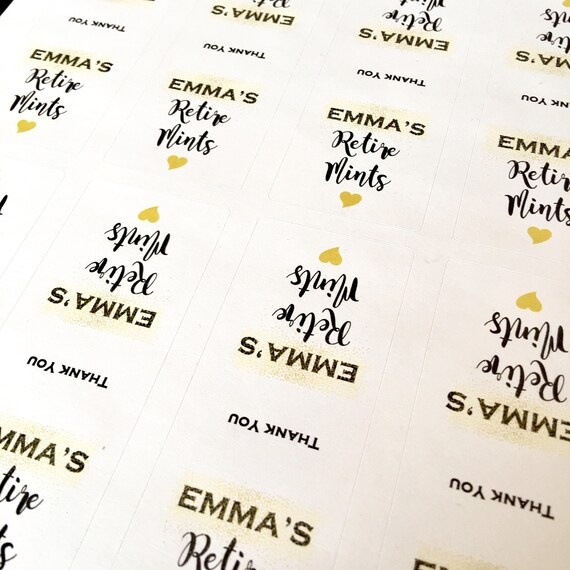 THANK YOU
EMMA'S
Retire
Mints
EMMA'S
THANK YOU
EMMA'S
Retire
Mints
Retire
EMMA'S
THANK YOU
EMMA'S
Retire
Mints
Retire
EMMA'S
THANK YOU
EMMA'S
Retire
Mints
Mints
Retire
EMMA'S
THANK YOU
EMMA'S
Retire
Mints
Retire
EMMA'S
THANK YOU
EMMA'S
Retire
Mints
Retire
EMMA'S
THANK YOU
EMMA'S